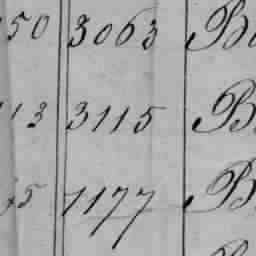 50 3063 B
13 3115 B
5 1177 B